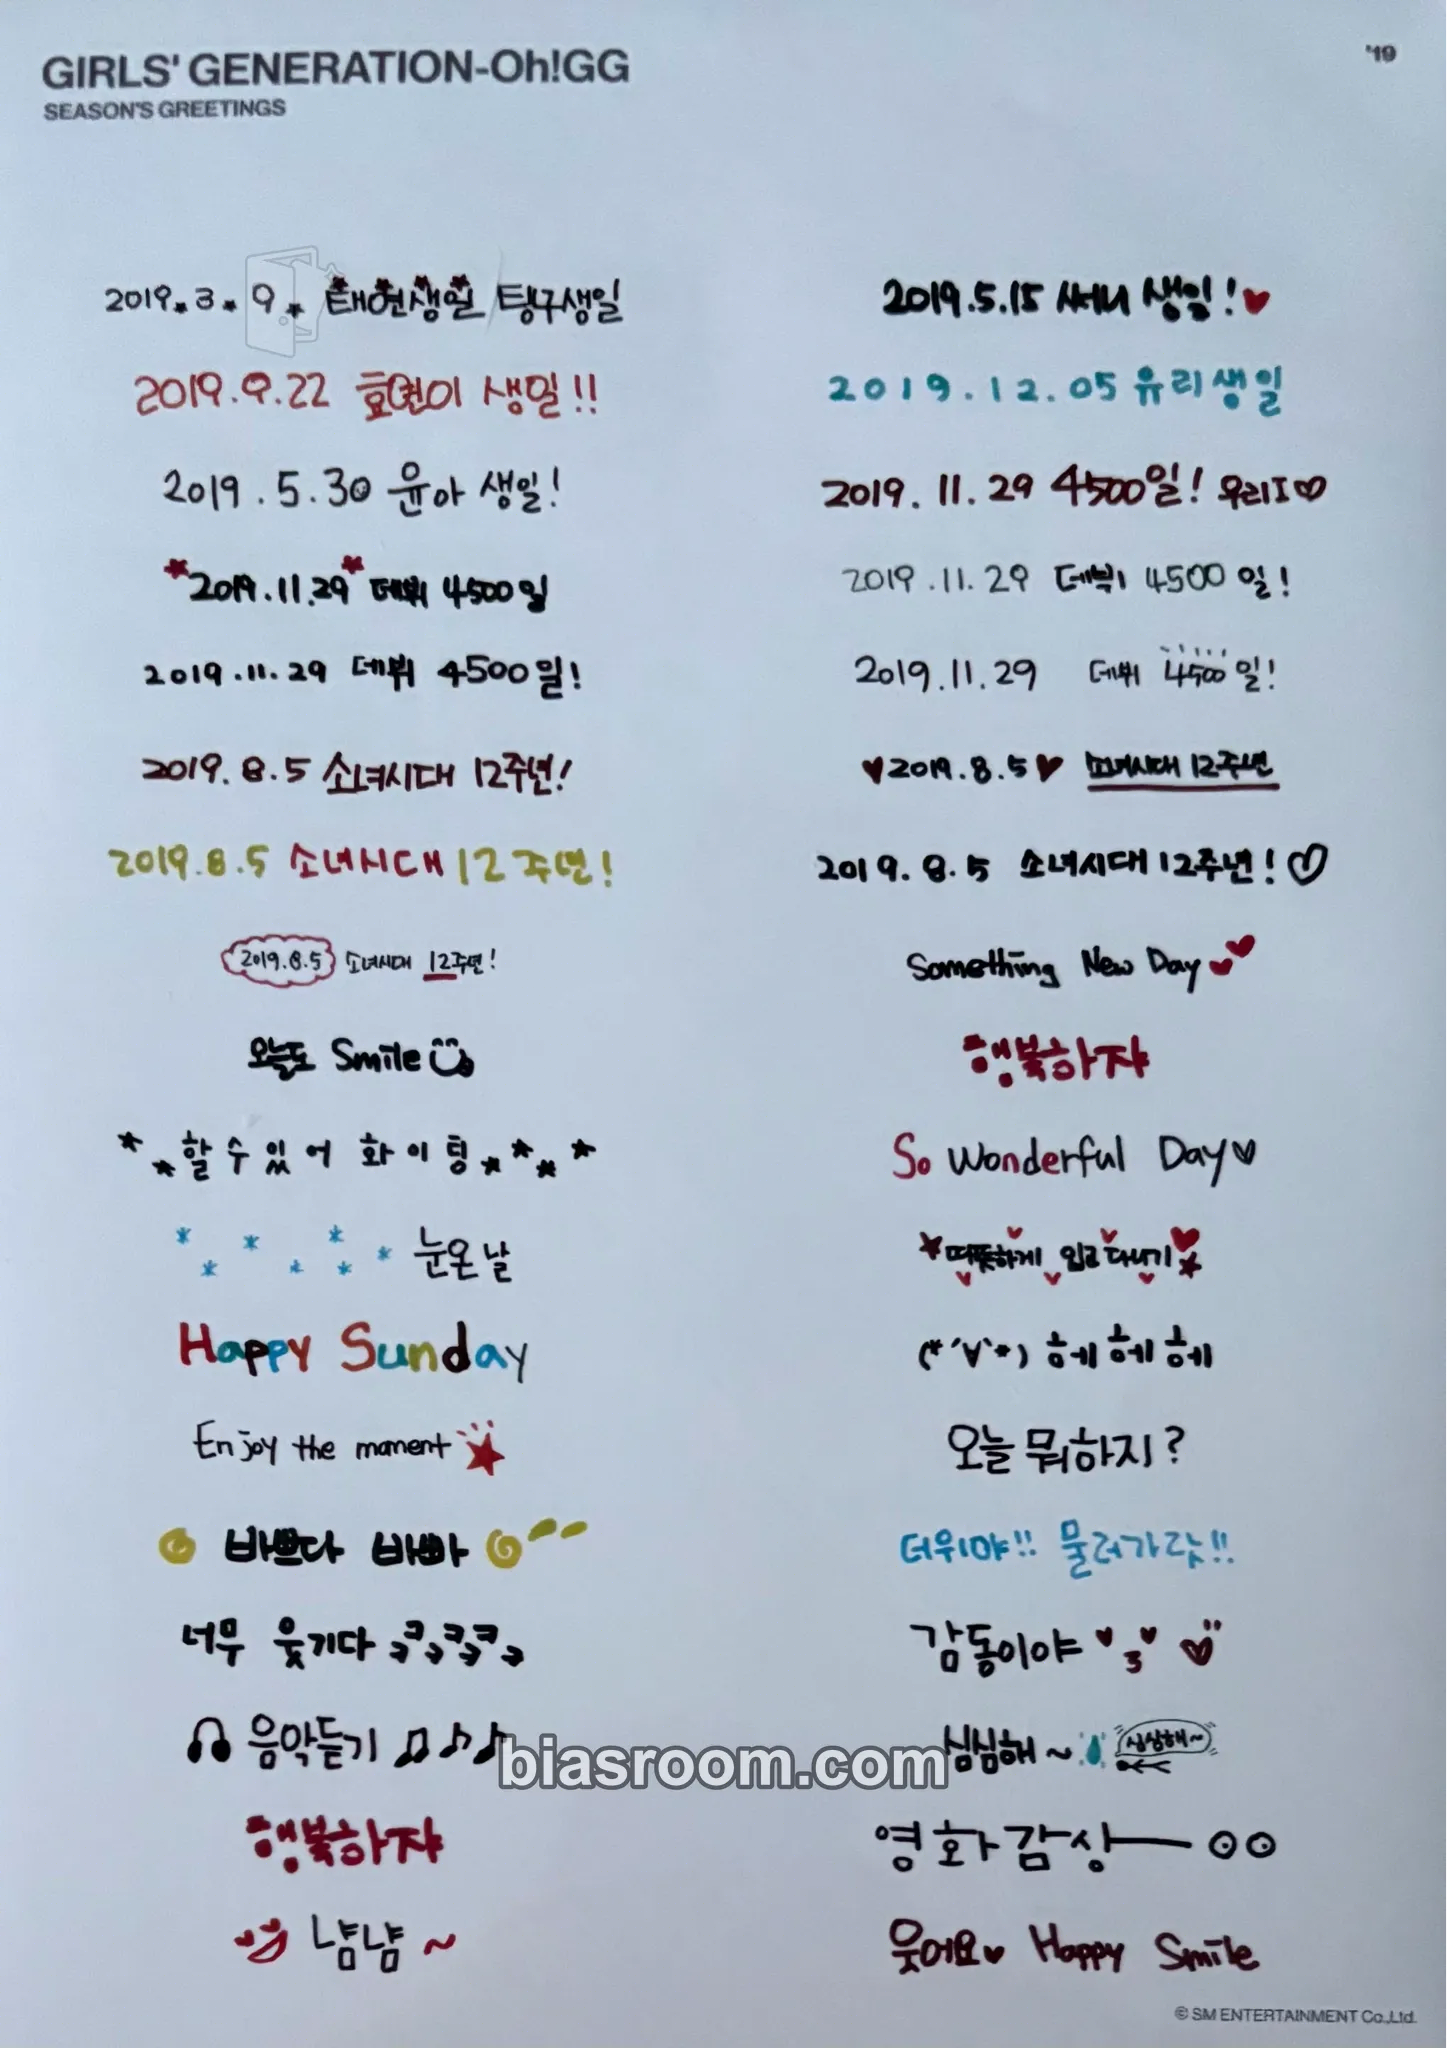 GIRLS' GENERATION-Oh!GG
'19
SEASON'S GREETINGS
2019.3.9. 태연생일 탱구생일
2019.5.15 써니 생일!
2019.9.22 효연이 생일!!
2019.12.05 유리생일
2019.5.30 윤아 생일!
2019.11.29 4500일! 우리I♡
*2019.11.29* 데뷔 4500일
2019.11.29 데뷔 4500일!
2019.11.29 데뷔 4500일!
2019.11.29 데뷔 4500일!
2019.8.5 소녀시대 12주년!
♥2019.8.5♥ 소녀시대 12주년
2019.8.5 소녀시대 12주년!
2019.8.5 소녀시대 12주년!♡
2019.8.5 소녀시대 12주년!
Something New Day
오늘도 Smile
행복하자
할 수 있어 화이팅
So Wonderful Day♥
눈온날
따뜻하게 입고다니기
Happy Sunday
(*´∀`*) 헤헤헤
Enjoy the moment
오늘 뭐하지?
바쁘다 바빠
더위야!! 물러가랏!!
너무 웃기다 ㅋㅋㅋㅋㅋㅋㅋ
감동이야 ♥3♥
음악듣기 ♫♪♪
심심해~ 심심해~
biasroom.com
행복하자
영화감상
냠냠~
웃어요♥ Happy Smile
© SM ENTERTAINMENT Co.,Ltd.